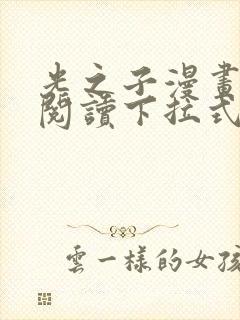 光之子漫畫
閱讀下拉式
雲一樣的女孩